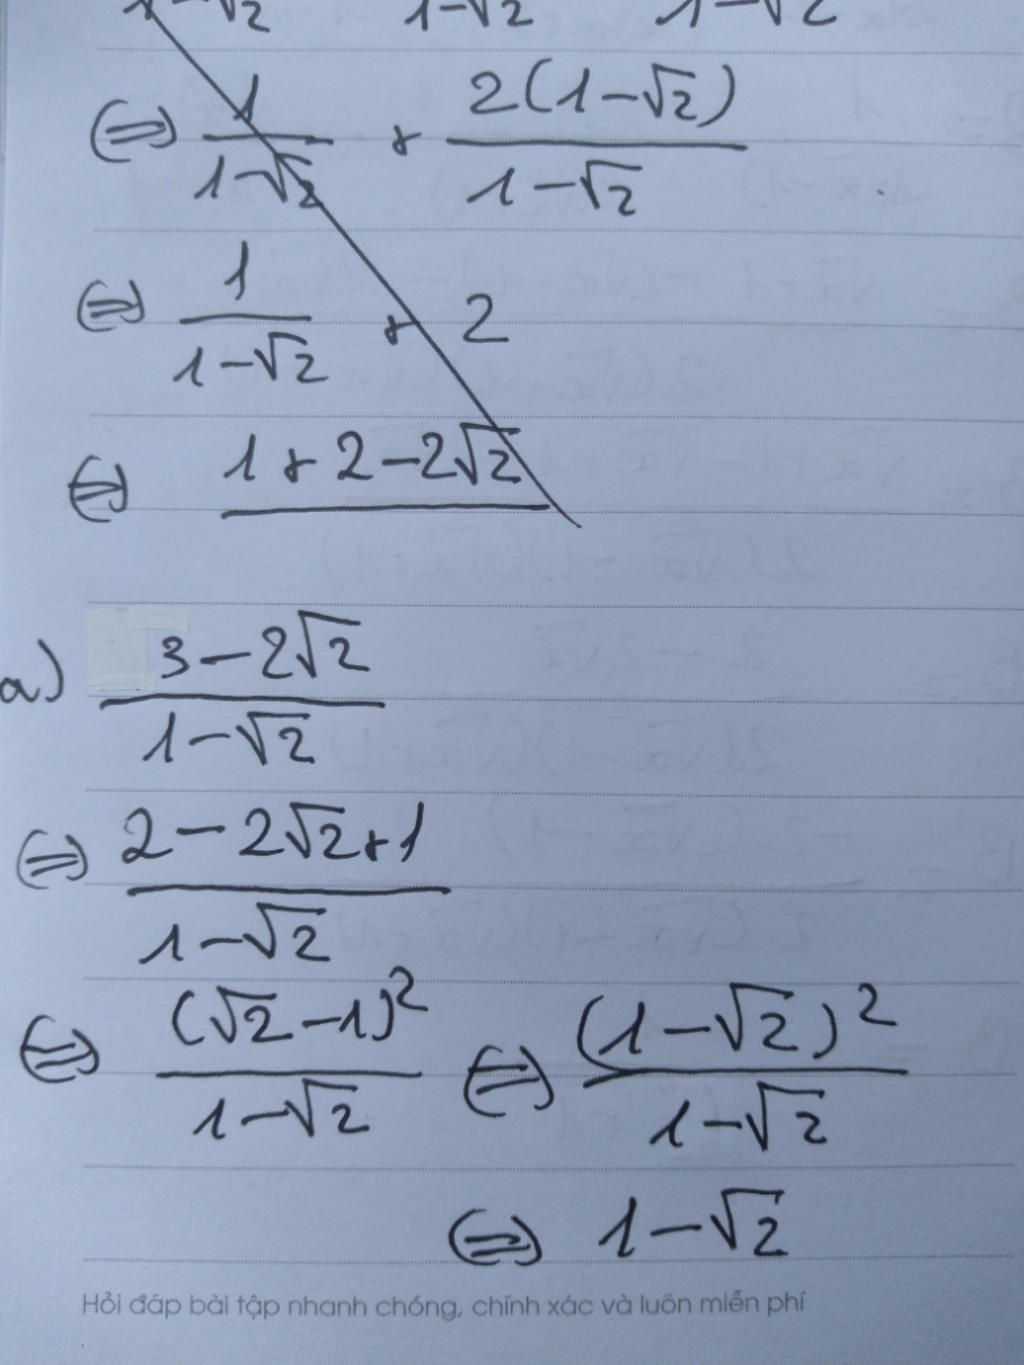 1-√2 1-√2 1-√2
(=) 1/(1-√2) + 2(1-√2)/(1-√2)
(=) 1/(1-√2) + 2
(=) 1+2-2√2
a) (3-2√2)/(1-√2)
(=) (2-2√2+1)/(1-√2)
(=) (√2-1)²/(1-√2) (=) (1-√2)²/(1-√2)
(=) 1-√2
Hỏi đáp bài tập nhanh chóng, chính xác và luôn miễn phí